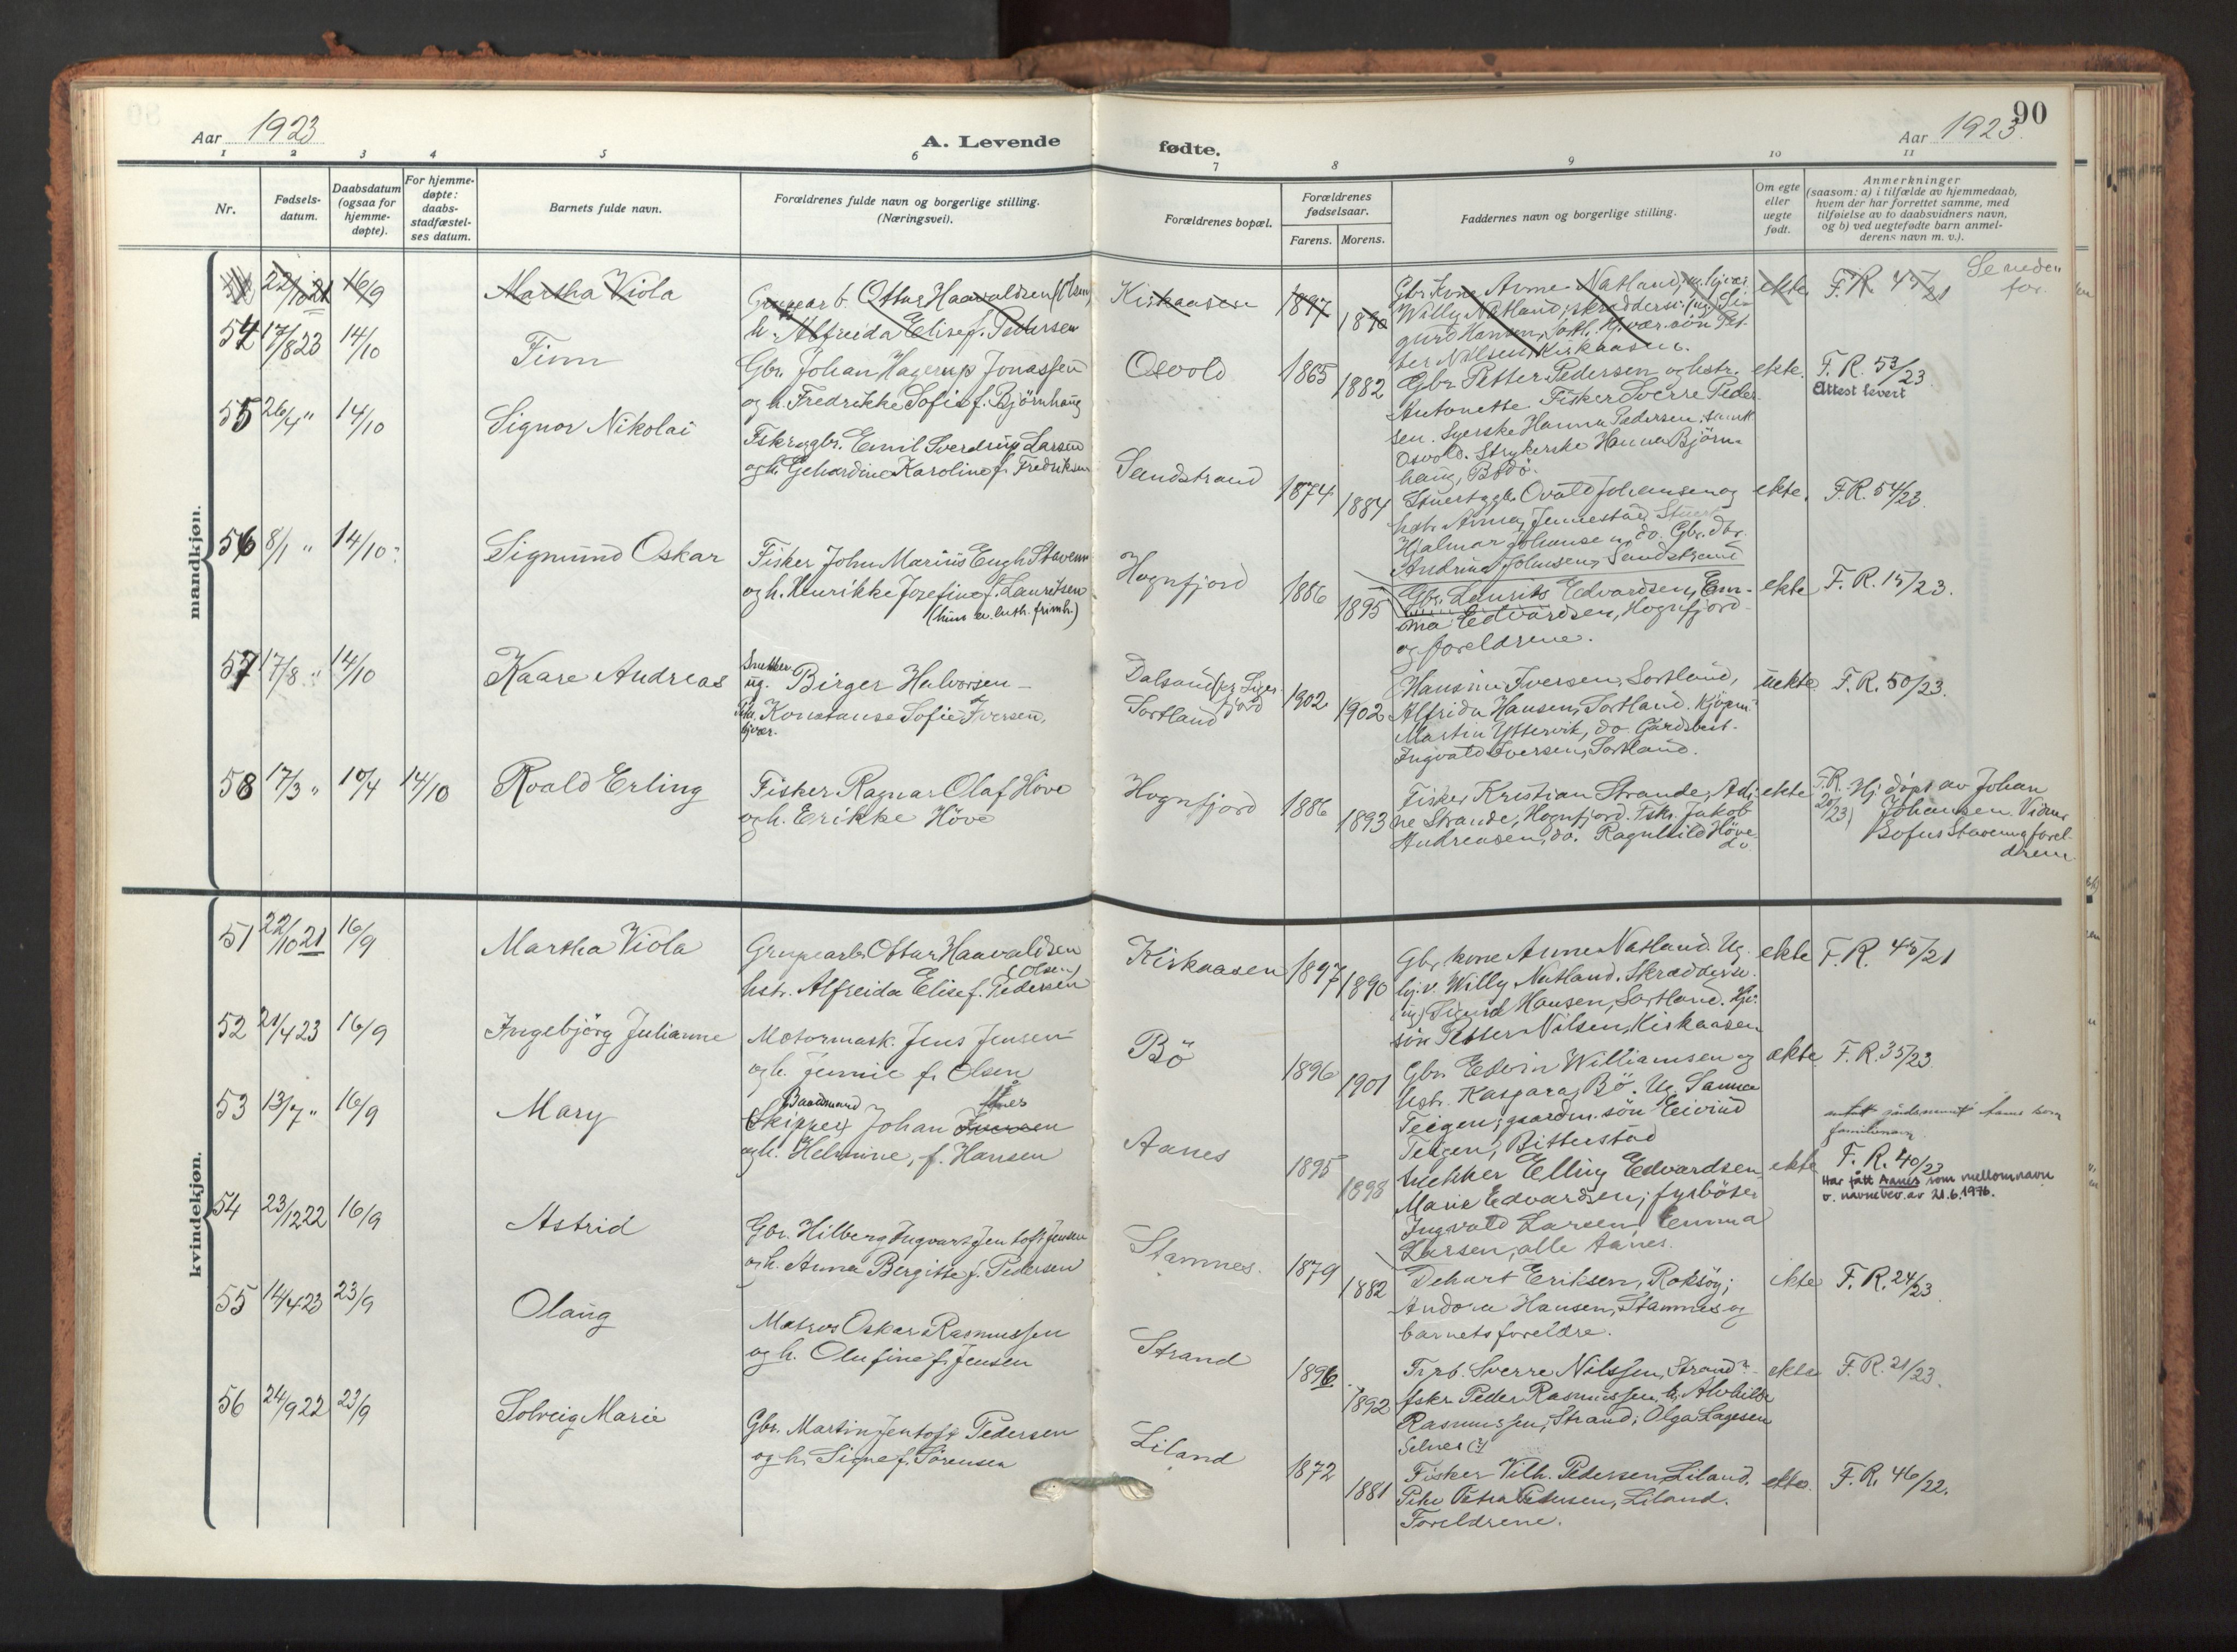 90
Aar 1923
A. Levende
fødte.
Aar 1923.
1 2 3 4 5 6 7 8 9 10 11
Nr.
Fødsels-
datum.
Daabsdatum
(ogsaa for
hjemme-
døpte).
For hjemme-
døpte:
daabs-
stadfæstel-
ses datum.
Barnets fulde navn.
Forældrenes fulde navn og borgerlige stilling.
(Næringsvei).
Forældrenes bopæl.
Forældrenes
fødselsaar.
Farens. Morens.
Faddernes navn og borgerlige stilling.
Om egte
eller
uegte
født.
Anmerkninger
(saasom: a) i tilfælde av hjemmedaab,
hvem der har forrettet samme, med
tilføielse av to daabsvidners navn,
og b) ved uegtefødte barn anmel-
derens navn m. v.).
mandkjøn.
22/10 21 16/9 Martha Viola
Ottar Haavaldsen (Olsen)
h. Alfreida Elise f. Pedersen
Kirkaasen 1897 1890
Gbr. kone Anne Natland,
Willy Natland, skræddersv. ug. Si-
gurd Hansen, Sortl. Hj.vær. søn Pet-
ter Nilsen, Kirkaasen.
ekte F.R. 45/21
Se neden
for.
54 17/8 23 14/10 Finn
Gbr. Johan Hagerup Jonassen
og h. Fredrikke Sofie f. Björnhaug
Osvold 1865 1882
Gbr. Petter Pedersen og hstr.
Antonette. Fisker Sverre Peder-
sen. Syerske Hanna Pedersen, samtl.
Osvold. Strykerske Hanna Björn-
haug, Bodö.
ekte. F.R. 53/23.
Attest levert
55 26/4 " 14/10 Signor Nikolai
Fskr. og gbr. Emil Sverdrup Larsen
og h. Gehardine Karoline f. Fredriksen
Sandstrand 1874 1884
Ovald Johansen og
hstr. Anna, Jennestad,
Hjalmar Johansen, do. Gbr. dtr.
Andrina Johnsen, Sandstrand
ekte. F.R. 54/23.
56 8/1 " 14/10 Sigmund Oskar
Fisker John Marius Eugh Stavenn
og h. Henrikke Josefine f. Lauritsen
(hun ev. luth. frimh.)
Hognfjord 1886 1895
Gbr. Laurits Edvardsen, Em-
ma Edvardsen, Hognfjord
og foreldrene.
ekte F.R. 15/23.
57 17/8 " 14/10 Kaare Andreas
Snekker
ug. Birger Halvorsen
Konstanse Sofie Iversen,
Dalsand
Sortland 1902 1902
Hansine Iversen, Sortland,
Alfrida Hansen, Sortland. Kjöpm.
Martin Yttervik, do. Gårdsbest.
Ingvald Iversen, Sortland.
uekte F.R. 50/23.
58 17/3 " 10/4 14/10 Roald Erling
Fisker Ragnar Olaf Höve
og h. Erikke Höve
Hognfjord 1886 1893
Fisker Kristian Strande, Adi-
ne Strande, Hognfjord. Fskr. Jakob
Andreasen, do. Ragnhild Höve
do
ekte F.R. 20/23)
Hj. döpt av Johan
Johansen. Vidner
Sofus Staven og forel-
drene.
kvindekjøn.
51 22/10 21 16/9 Martha Viola
Grupearb. Ottar Haavaldsen
(Olsen)
hstr. Alfreida Elise f. Pedersen
Kirkaasen 1897 1890
Gbr. kone Anne Natland. Ug.
hj.v. Willy Natland. Skræddersv.
(ug) Sigurd Hansen, Sortland. Hjv.
sön Petter Nilsen, Kirkaasen
ekte F.R. 45/21
52 21/4 23 16/9 Ingebjörg Julianne
Motormask. Jens Jensen
og h. Jennie f. Olsen
Bö 1896 1901
Gbr. Edvin Williamsen og
hstr. Kaspara, Bö. Ug. Sanna
Teigen, gaardm. sön Eivind
Teigen, Bitterstad
ekte F.R. 35/23.
53 13/7 " 16/9 Mary
Baadsmand
Skipper Johan Iversen
og h. Helmine, f. Hansen
Aanes 1895 1898
Snekker Elling Edvardsen
Marie Edvardsen, fyrböter
Ingvald Larsen, Emma
Larsen, alle Aanes.
ekte
familienavn
F.R. 40/23
Har fått Aanes som mellomnavn
v. navnebev. av 21.6.1976.
54 23/12 22 16/9 Astrid
Gbr. Hilberg Ingvart Jentoft Jensen
og h. Anna Bergitte f. Pedersen
Stamnes. 1879 1882
Dehart Eriksen, Roksöy;
Andora Hansen, Stamnes og
barnets foreldre.
ekte F.R. 24/23
55 14/4 23 23/9 Olaug
Matros Oskar Rasmussen
og h. Olufine f. Jensen
Strand 1896. 1892
Sverre Nilssen, Strand
fskr. Peder Rasmussen, h. Alvhilde
Rasmussen, Strand; Olga Lagesen
Selnes (?)
ekte F.R. 21/23.
56 24/9 22 23/9 Solveig Marie
Gbr. Martin Jentoft Pedersen
og h. Signe f. Sörensen
Liland 1872 1881
Fisker Vilh. Pedersen, Liland.
Pike Petra Pedersen, Liland.
Foreldrene.
ekte. F.R. 46/22.